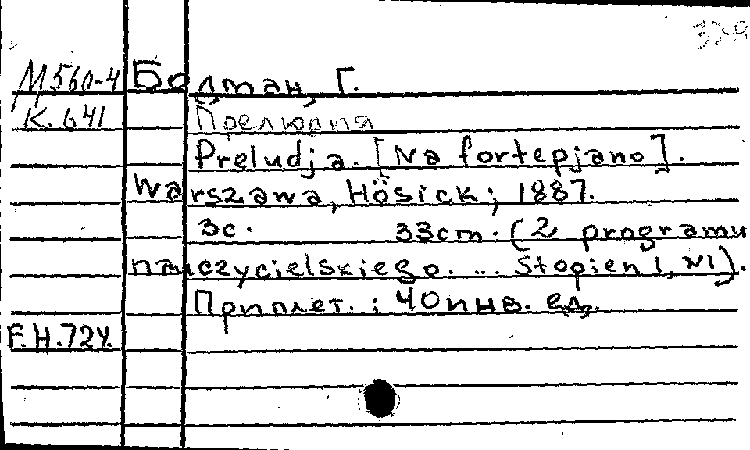 329
М560-4 Болтан, Г.
К.641 Прелюдия
Preludja. [Na fortepjano].
Warszawa, Hösick; 1887.
3c. 33cm. (Z programu
nauczycielskiego... Stopien I, N1).
Приплет.: 40 инв. ед.
F.H.724